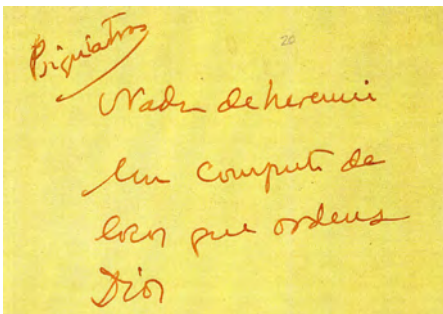 Psiquiatras
20
Nada de
un computo de
locos que ordena
Dios